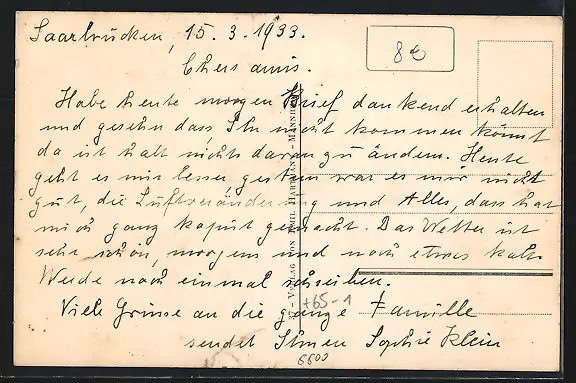 Saarbrücken, 15. 3. 1933.
80
Chers amis.
Habe heute morgen Brief dankend erhalten
und gesehn dass Ihr nicht kommen könnt
da ist halt nichts daran zu ändern. Heute
geht es mir besser gestern war es mir nicht
gut, die Luftveränderung und Alles, dass hat
mich ganz kaputt gemacht. Das Wetter ist
sehr schön, morgens und noch etwas kalt.
Werde noch einmal schreiben.
Viele Grüsse an die ganze Familie
sendet Ihnen Sophie Klein
+65-1
6600
37 - VERLAG VON EMIL HARTMANN - MANNHEIM